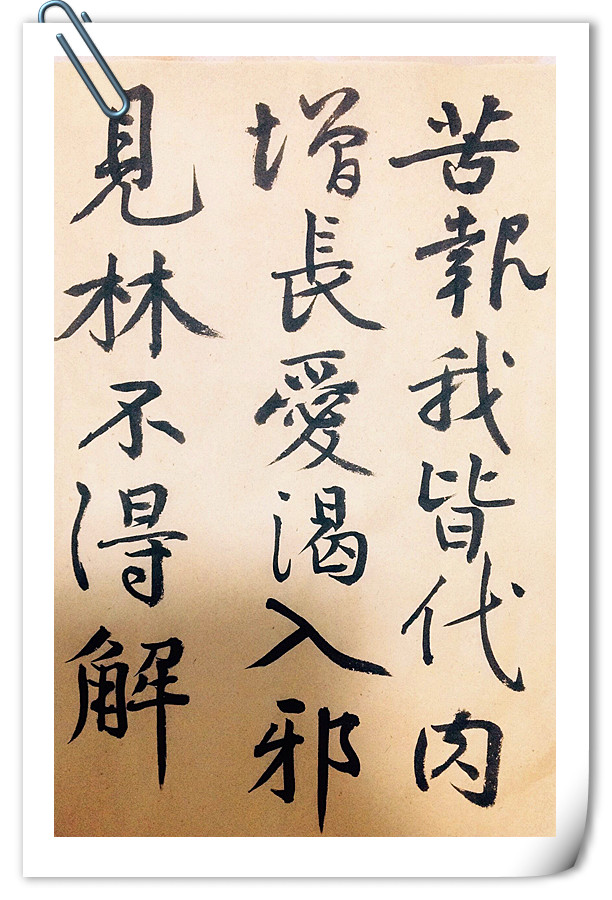 苦報我皆代肉
增長愛渴入邪
見林不得解